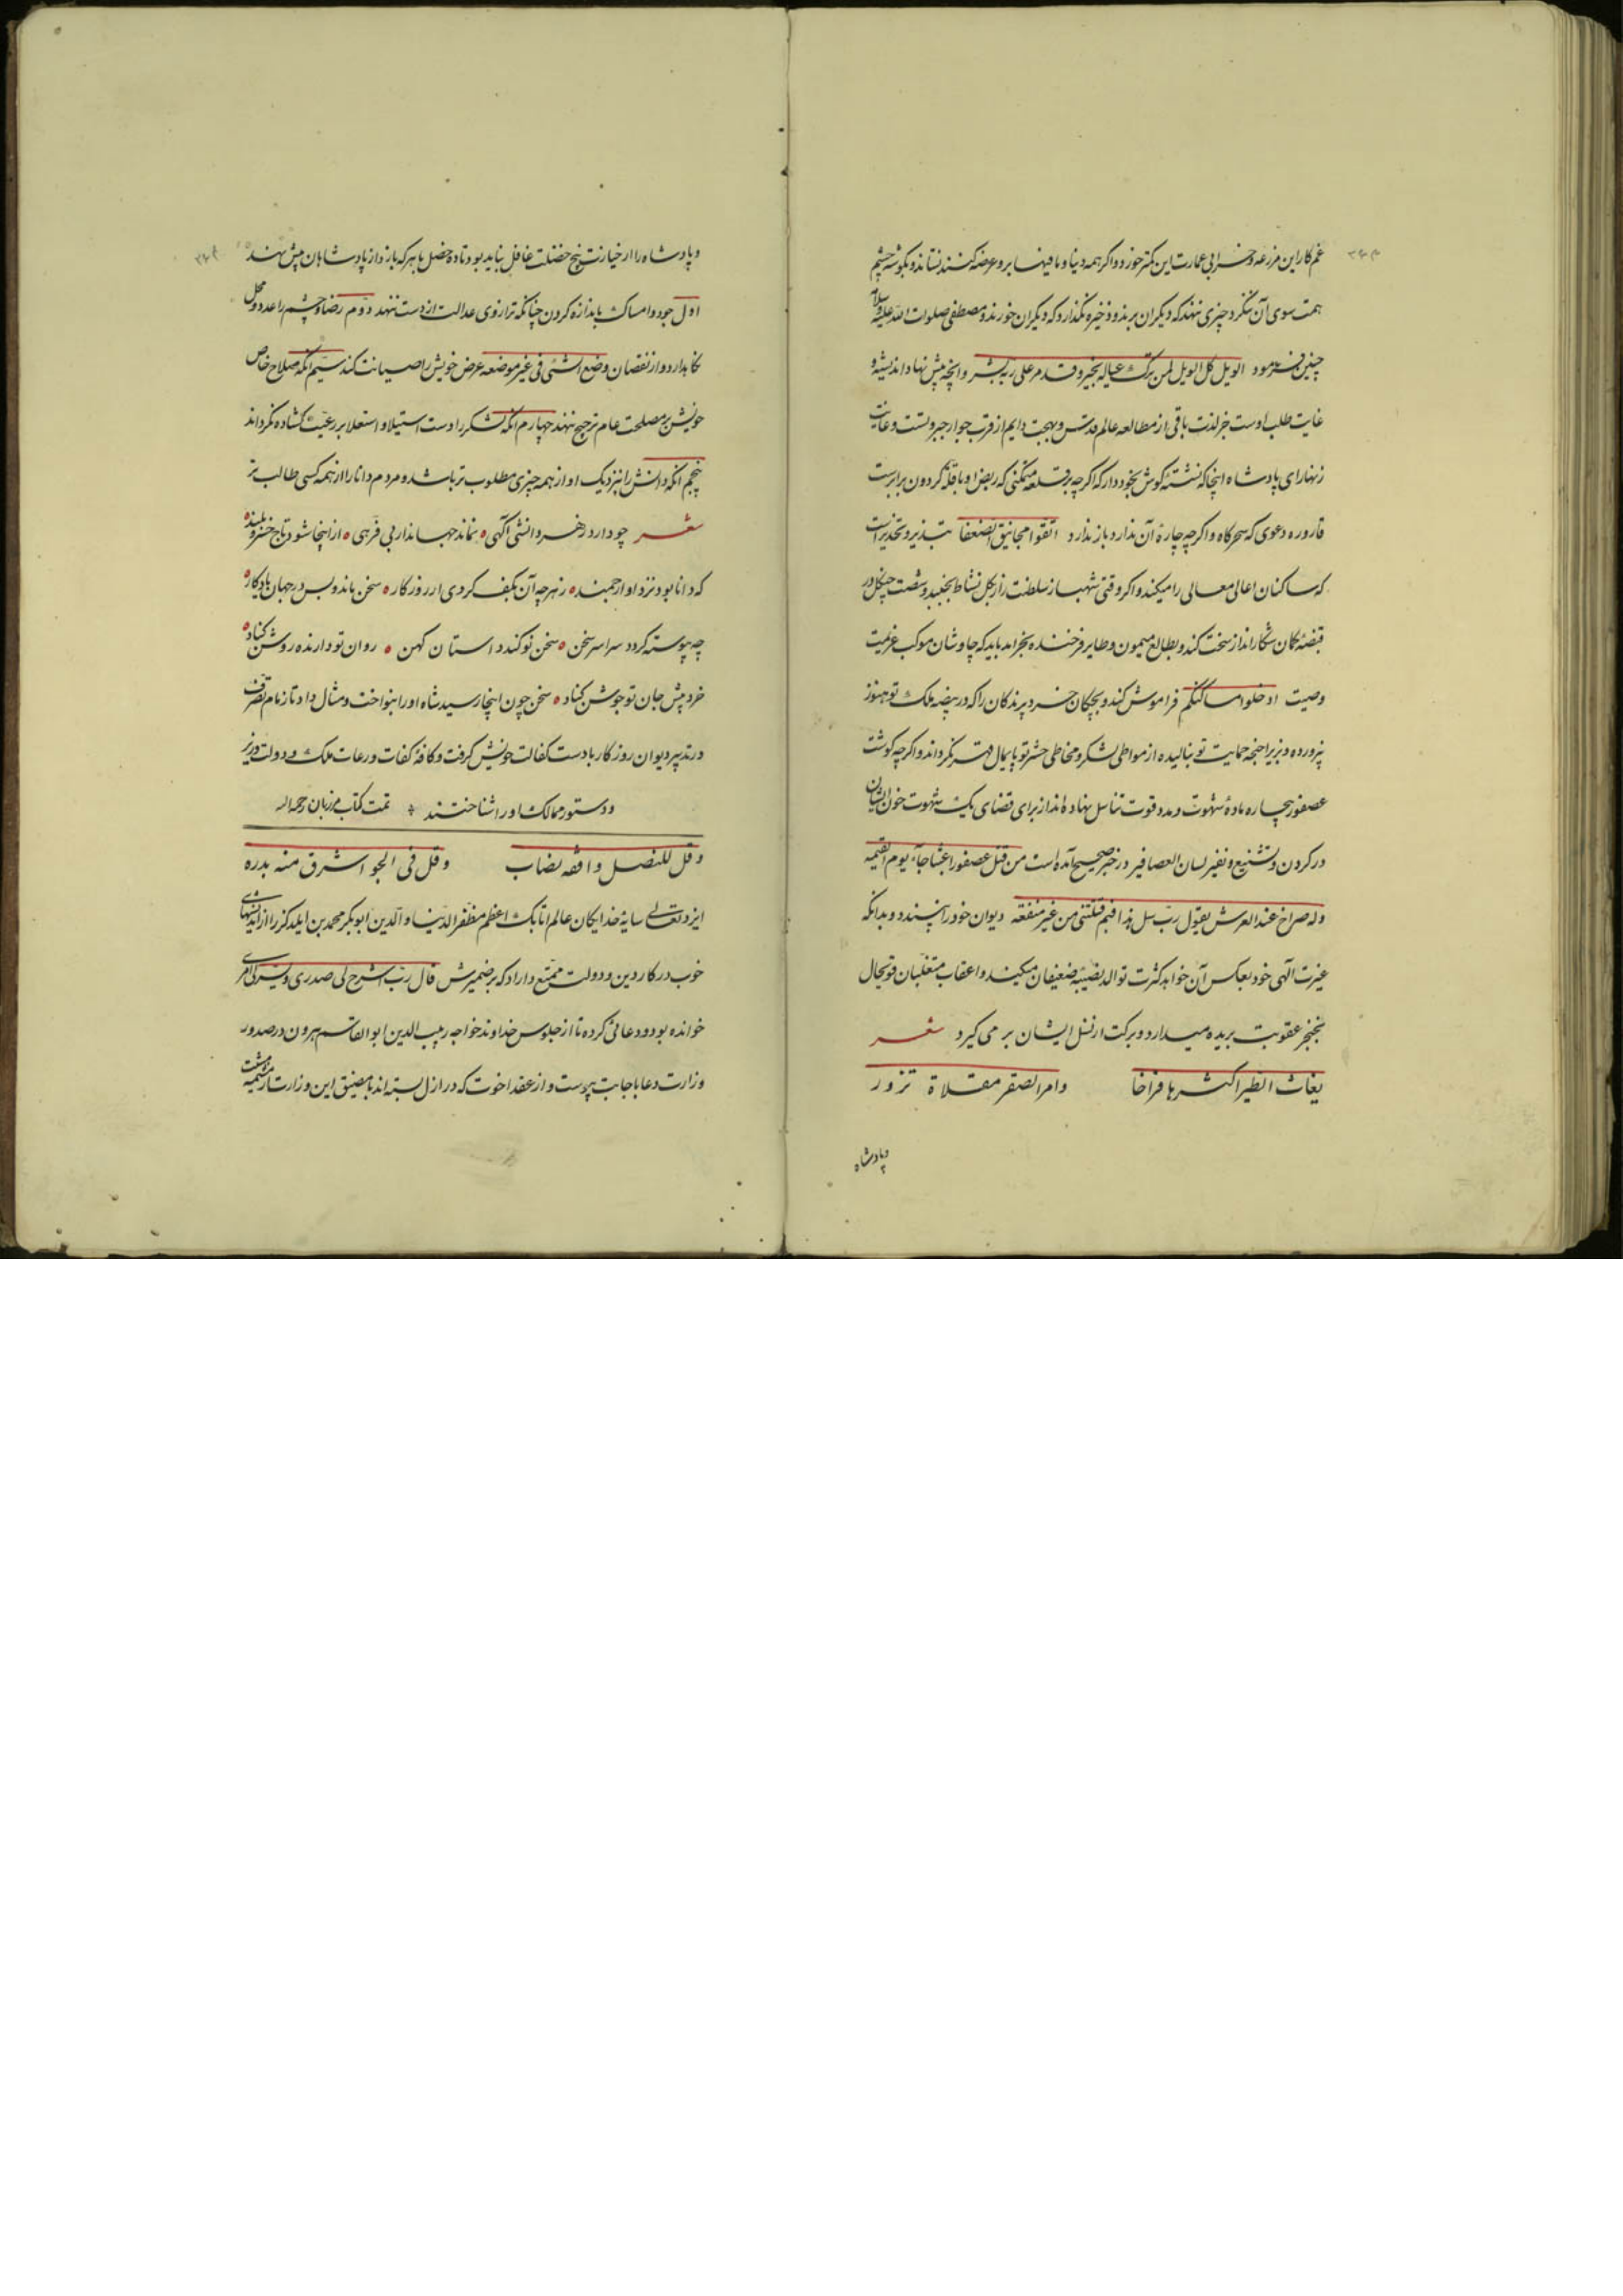 غم کار این مزرعه و خرابی عمارت این کمتر خورد و اگر همه دینا و ما فیها برو عرضه کنند نستاند و بگوشه چشم
همت سوی آن ننگرد چیزی ننهد که دیگران برند و ذخیره نگذارد که دیگران خورند و مصطفی صلوات الله علیه و سلامه
چنین فرمود الویل کل الویل لمن ترک عیاله بخیر و قدم علی ربه بشر و انچه پیش نهاد اندیشه و
غایت طلب اوست جز لذت باقی از مطالعه عالم قدس و بهجت دایم از قرب جوار جبروتست و غایت
زنهار ای پادشاه اینجا که نشسته گوش بخود دار که اگر چه بر قلعه متمکنی که ربض او با قله گردون برابرست
قاروره دعوی که سحرگاه و اگر چه چاره آن ندارد باز ندارد اتقوا مجانیق الضعفا تبذیر و تحذیر است
که ساکنان اعالی معالی را میکند و اگر وقتی شهباز سلطنت را زنگل نشاط بجنبد و شصت چنگل در
قبضه کمان شکار انداز سخت کند و بطالع میمون و طایر فرخنده بخرامد باید که چاوشان موکب عزیمت
وصیت ادخلوا مساکنکم فراموش کند و بچگان خرد پرندگان را که در بیضه ملک تو هنوز
پرورده و زیر اجنحه حمایت تو بنالیده از مواطی لشکر و مخاطی حشر تو پایمال قهر نگرداند و اگر چه گوشت
عصفور بیچاره ماده شهوت و مدد قوت تناسل نهاده اند از برای قضای یک شهوت خون ایشان
در گردن و تشنیع و نفیر لسان العصافیر در خبر صحیح آمده است من قتل عصفورا عبثا جاء یوم القیمه
وله صراخ عند العرش یقول رب سل هذا فیم قتلتنی من غیر منفعه دیوان خود را نپسندد و بدانکه
غیرت الهی خود بعکس آن خواهد کثرت توالد نصیبه ضعیفان میکند و اعقاب متغلبان قویحال
بخنجر عقوبت بریده میدارد و برکت از نسل ایشان بر می گیرد شعر
بغاث الطیر اکثرها فراخا وام الصقر مقلاة نزور
و پادشاه
و پادشاه را از خیارت پنج خصلت غافل نباید بود تا ده خصل با هر که بازد از پادشاهان پیش نهند
اول جود و امساک باندازه کردن چنانکه ترازوی عدالت از دست ننهد دوم رضا و خشم را عدد و محل
نگاه دارد و از نقصان وضع الشئی فی غیر موضعه عرض خویش را صیانت کند سیم انکه صلاح خاص
خویش بر مصلحت عام ترجیح ننهد چهارم انکه لشکر را دست استیلا و استعلا بر رعیت گشاده نگرداند
پنجم انکه دانش را بنزدیک او از همه چیزی مطلوب تر باشد و مردم دانا را از همه کسی طالب تر
شعر چو دارد ز هر دانشی آگهی ه نماند جهاندار بی فرهی ه از اینجا شود تاج خسرو بلند ه
که دانا بود نزد او ارجمند ه ز هر چه آن بکف کردی از روزگار ه سخن ماند و بس در جهان یادگار ه
چه پیوسته گردد سراسر سخن ه سخن نو کند داستان کهن ه روان تو دارنده روشن کناد ه
خرد پیش جان تو جوشن کناد ه سخن چون اینجا رسید شاه او را بنواخت و مثال داد تا زمام تصرف
در تدبیر دیوان روزگار بادست کفالت خویش گرفت و کافه کفات و رعات ملک و دولت وزیر
و دستور ممالک او را شناختند تمت کتاب مرزبان رحمه الله
وقل للنصل وافقه نصاب وقل فی الجو اشرق منه بدره
ایزد تعالی سایه خدایگان عالم اتابک اعظم مظفر الدنیا و الدین ابو بکر محمد بن ایلدکز را از اندیشهای
خوب در کار دین و دولت ممتع داراد که بر ضمیرش قال رب اشرح لی صدری و یسر لی امری
خوانده بود و دعائی کرده تا از جلوس خداوند خواجه ربیب الدین ابو القاسم هرون در صدور
وزارت دعا باجابت پیوست و از عقد اخوت که در ازل بسته اند با مضیق این وزارت